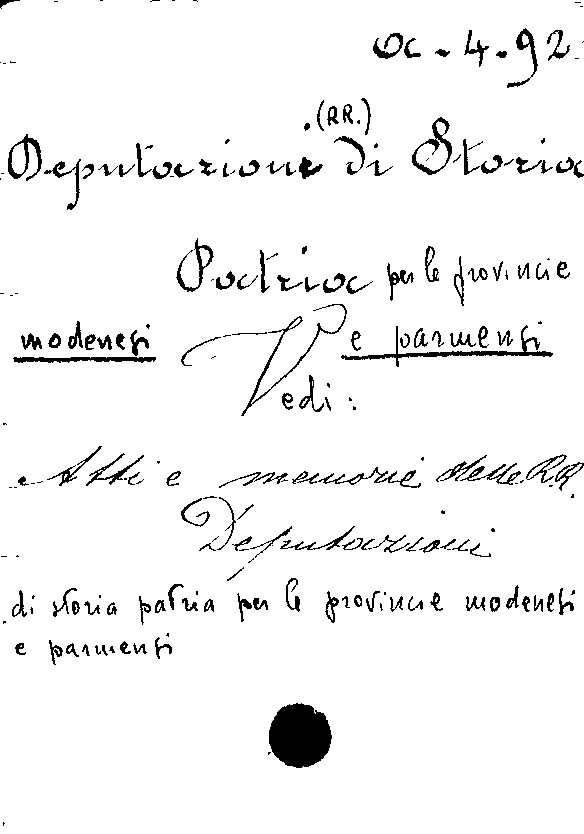 α.4.92
(RR.)
Deputazione di Storia
Patria per le provincie
modenesi e parmensi
Vedi:
Atti e memorie delle R.R.
Deputazioni
di storia patria per le provincie modenesi
e parmensi